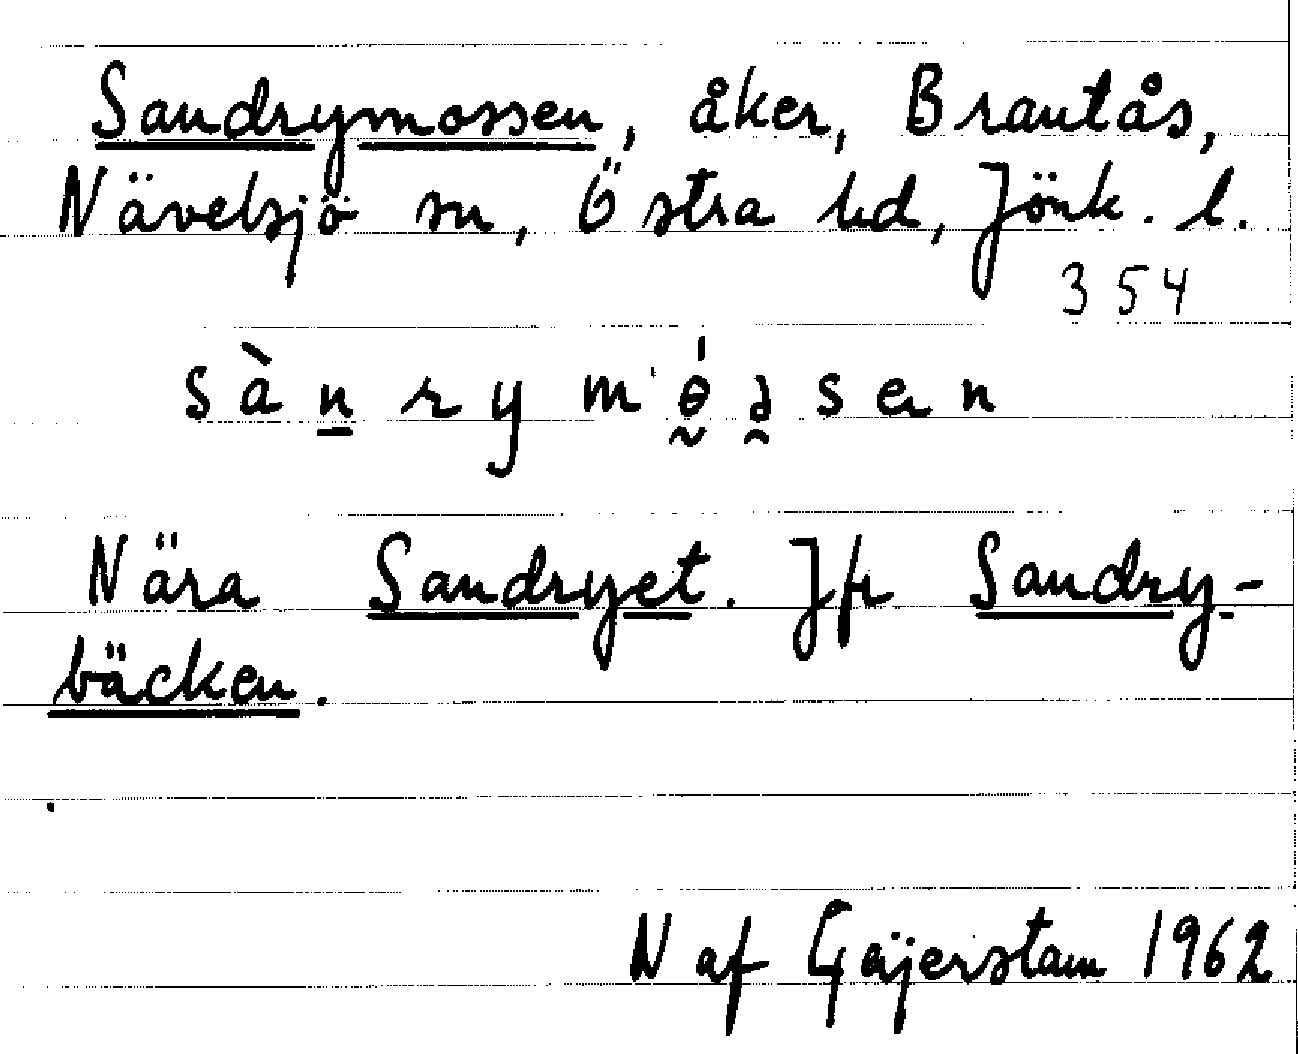 Sandrymossen, åker, Brantås,
Nävelsjö sn, Östra hd, Jönk. l.
354
sànrym'ɵ́əsen
Nära Sandryet. Jfr Sandry-
bäcken.
N af Gäjerstam 1962